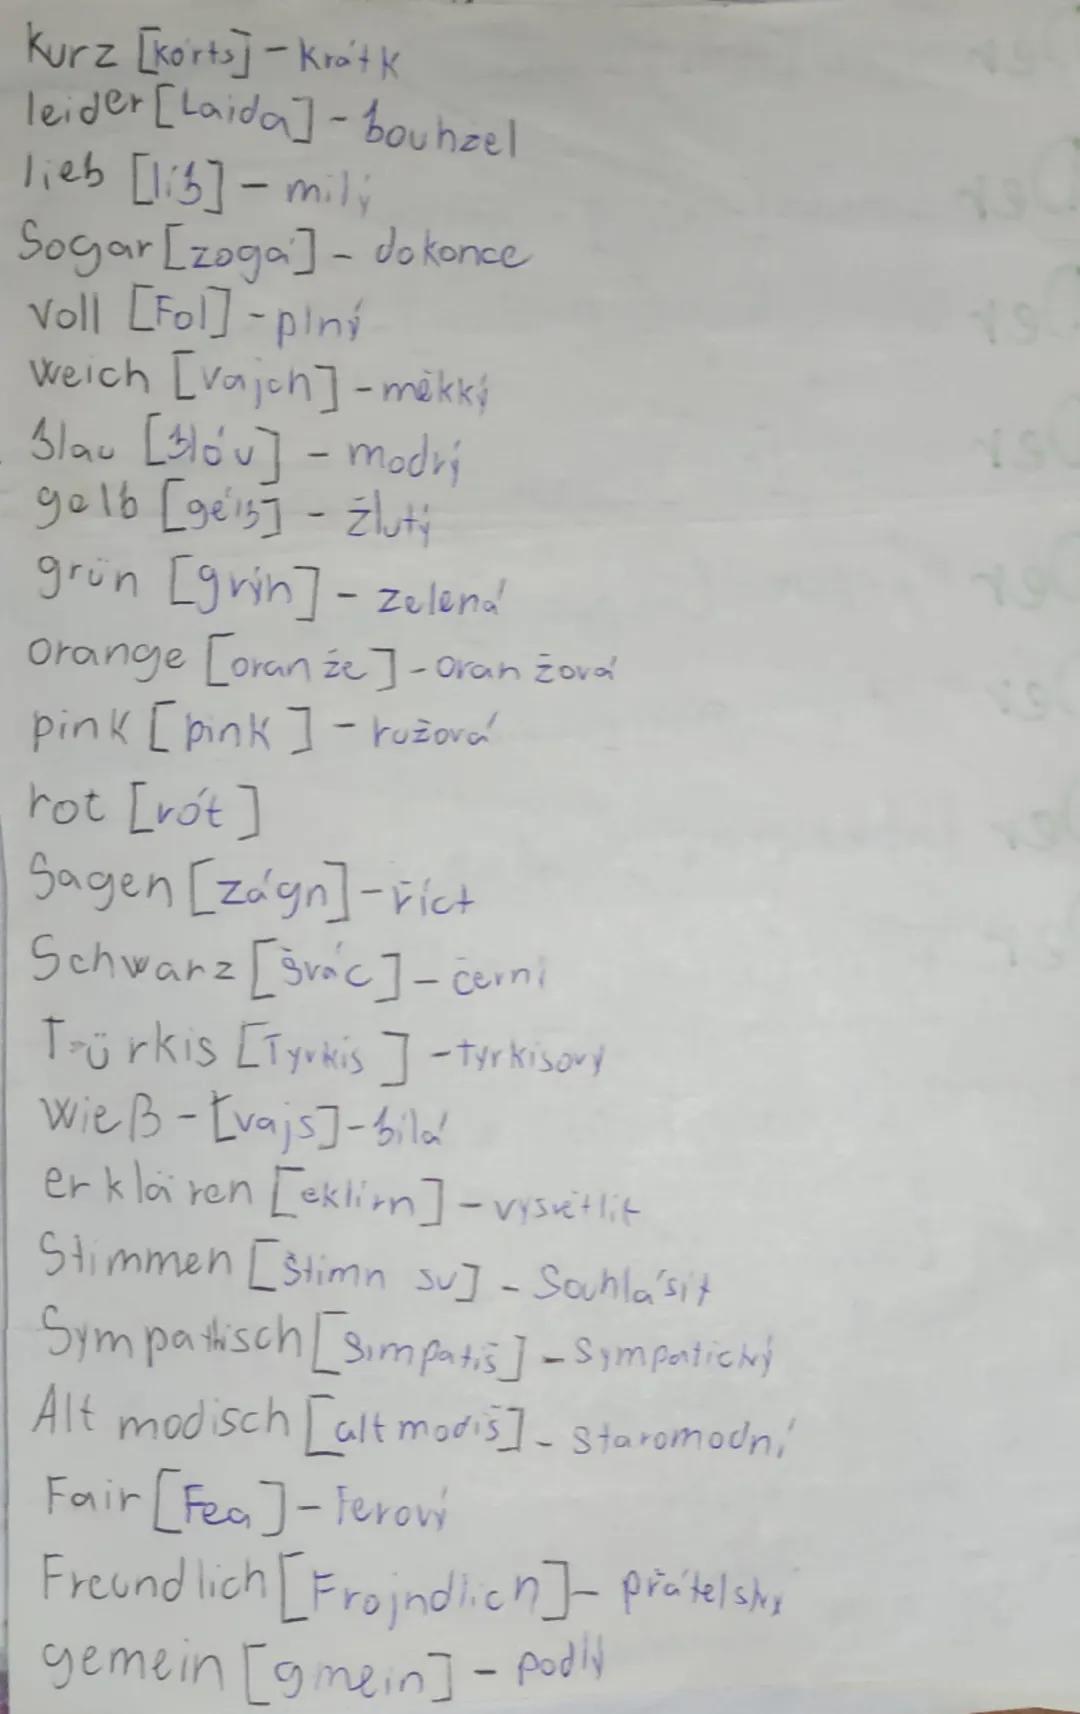 Kurz [kórts] - Krátk
leider [Laida] - bouhzel
lieb [líb] - milý
Sogar [zogá] - dokonce
Voll [Fol] - plný
Weich [vajch] - měkký
blau [blóu] - modrý
gelb [gélb] - žlutý
grün [grýn] - zelená
orange [oranže] - oranžová
pink [pink] - ružová
rot [rót]
Sagen [zágn] - říct
Schwarz [švác] - černi
Türkis [Tyrkis] - tyrkisový
Wieß - [vajs] - bílá
erklären [eklírn] - vysvětlit
Stimmen [štimn su] - Souhlásit
Sympathisch [Simpatiš] - Sympatický
Alt modisch [alt modiš] - Staromodní
Fair [Fea] - Ferový
Freundlich [Frojndlich] - přátelský
gemein [gmein] - podlý